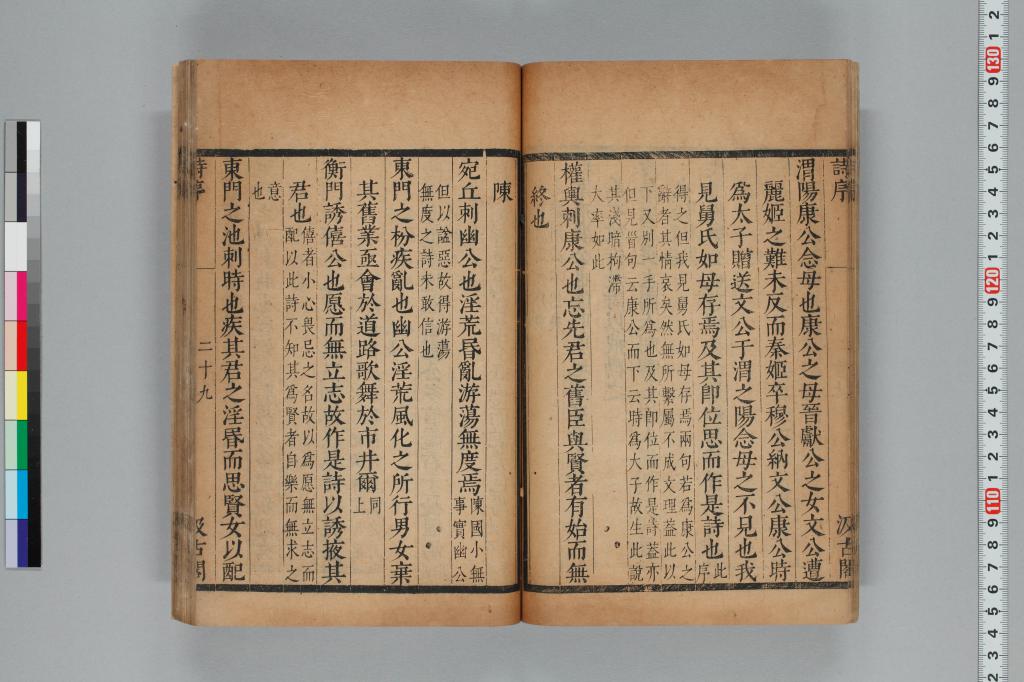 詩序
汲古閣
渭陽康公念母也康公之母晉獻公之女文公遭
麗姬之難未反而秦姬卒穆公納文公康公時
爲太子贈送文公于渭之陽念母之不見也我
見舅氏如母存焉及其卽位思而作是詩也此序
得之但我見舅氏如母存焉兩句若爲康公之
辭者其情哀矣然無所繫屬不成文理蓋此以
下又別一手所爲也及其卽位而作是詩蓋亦
但見首句云康公而下云時爲大子故生此說
其淺暗拘滯
大率如此
權輿刺康公也忘先君之舊臣與賢者有始而無
終也
陳
宛丘刺幽公也淫荒昬亂游蕩無度焉陳國小無
事實幽公
但以諡惡故得游蕩
無度之詩未敢信也
東門之枌疾亂也幽公淫荒風化之所行男女棄
其舊業亟會於道路歌舞於市井爾同上
衡門誘僖公也愿而無立志故作是詩以誘掖其
君也僖者小心畏忌之名故以爲愿無立志而
配以此詩不知其爲賢者自樂而無求之
意
也
東門之池刺時也疾其君之淫昬而思賢女以配
詩序
二十九
汲古閣